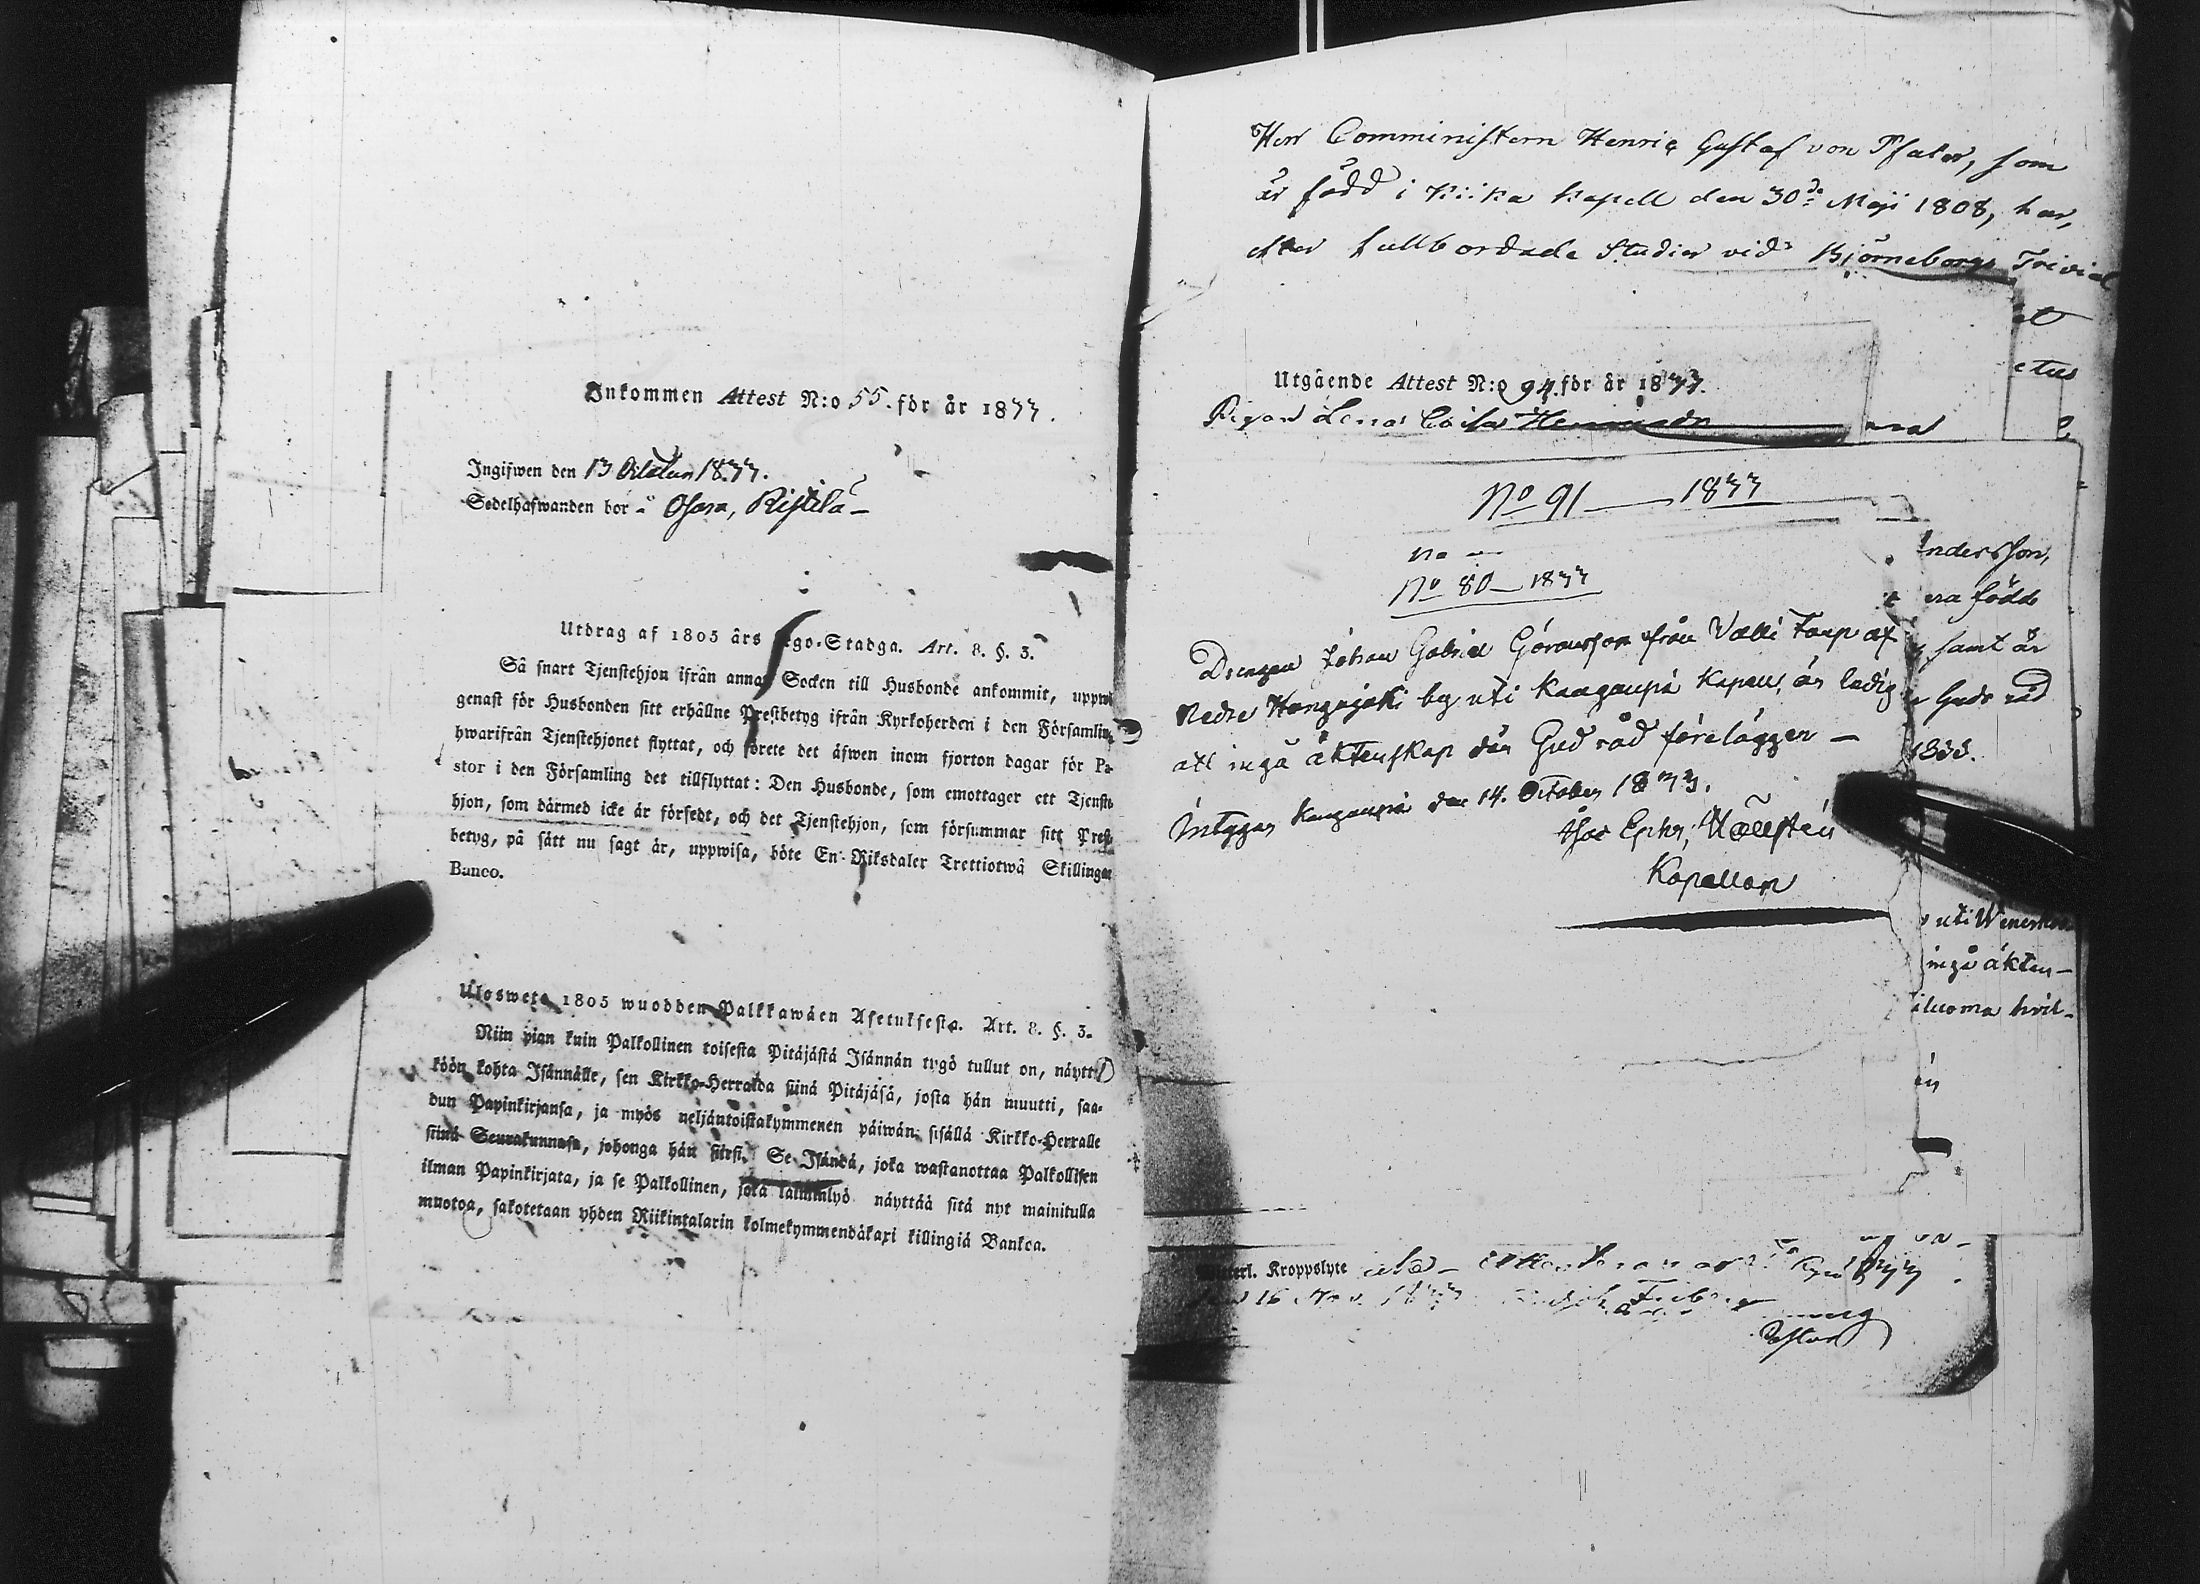 Inkommen Attest N:o 55. för år 1833.
Ingifwen den 13 October 1833.
Sedelhafwanden bor i Osara, Ristilä
Utdrag af 1805 års Lego-Stadga. Art. 8. §. 3.
Så snart Tjenstehjon ifrån annan Socken till Husbonde ankommit, uppwi
genast för Husbonden sitt erhållne Prestbetyg ifrån Kyrkoherden i den Församling
hwarifrån Tjenstehjonet flyttat, och förete det äfwen inom fjorton dagar för Pa-
stor i den Församling det tillflyttat: Den Husbonde, som emottager ett Tjenste
hjon, som därmed icke är försedt, och det Tjenstehjon, som försummar sitt Prest
betyg, på sätt nu sagt är, uppwisa, böte En Riksdaler Trettiotwå Skillingar
Banco.
Ulosweto 1805 wuodden Palkkawäen Asetuksesta. Art. 8. §. 3.
Niin pian kuin Palkollinen toisesta Pitäjästä Isännän tygö tullut on, näyttä
köön kohta Isännälle, sen Kirkko-Herralda siinä Pitäjäsä, josta hän muutti, saa-
dun Papinkirjansa, ja myös neljäntoistakymmenen päiwän sisällä Kirkko-Herralle
siinä Seurakunnasa, johonga hän siirsi. Se Isändä, joka wastanottaa Palkollisen
ilman Papinkirjata, ja se Palkollinen, joka laiminlyö näyttää sitä nyt mainitulla
muotoa, sakotetaan yhden Riikintalarin kolmekymmendäkaxi killingiä Bankoa.
Herr Comministern Henric Gustaf von Pfaler, som
är född i Kiika Kapell den 30de Maji 1808, har,
efter fullbordade Studier vid Björneborgs Trivial
et
etus
Utgående Attest N:o 94. för år 1833.
Pigan Lena Caisa
No 91 — 1833
No 80 — 1833
ndersson,
era födde
samt är
Guds råd
1833.
Drengen Johan Gabriel Göransson från Välli Torp af
Nedre Honganjoki by uti Kangaspä Kapell, är ledig
att ingå äktenskap där Gud råd föreläggen —
Intygar Kangaspä den 14. October 1833.
Isac Ephr; Wallstén
Kapellan
uti
ingå äkten-
Kroppslyte
16 Nov. 1833
Pastor